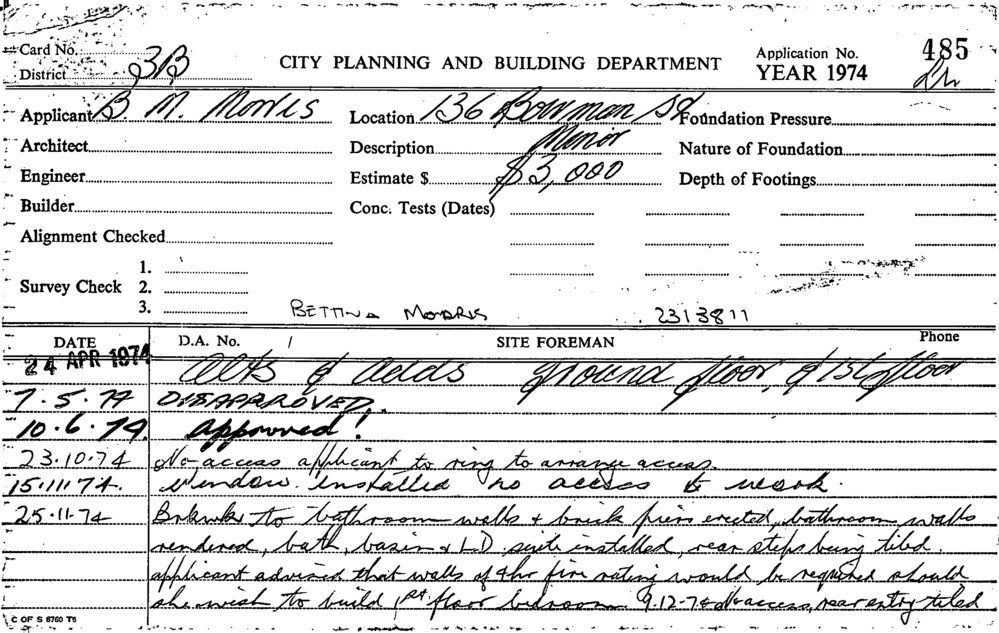 Card No. 
District 3B
CITY PLANNING AND BUILDING DEPARTMENT
Application No. 485
YEAR 1974
Applicant B. M. Morris
Location 136 Bowman St
Foundation Pressure
Architect
Description Minor
Nature of Foundation
Engineer
Estimate $ $3,000
Depth of Footings
Builder
Conc. Tests (Dates)
Alignment Checked
Survey Check
1.
2.
3.
BETTINA MORRIS 2313811
DATE D.A. No. / SITE FOREMAN Phone
24 APR 1974 Alts & adds ground floor, & 1st floor
7.5.74 DISAPPROVED.
10.6.74. Approved!
23.10.74 No access applicant to ring to arrange access.
15.11.74. Window installed no access to work.
25.11.74 Brkwk to bathroom walls + brick piers erected, bathroom walls
rendered, bath, basin & L.D. suite installed, rear steps being tiled.
applicant advised that walls of 4hr fire rating would be required should
she wish to build 1st floor bedroom 9.12-74 No access, rear entry tiled
C OF S 6760 T5